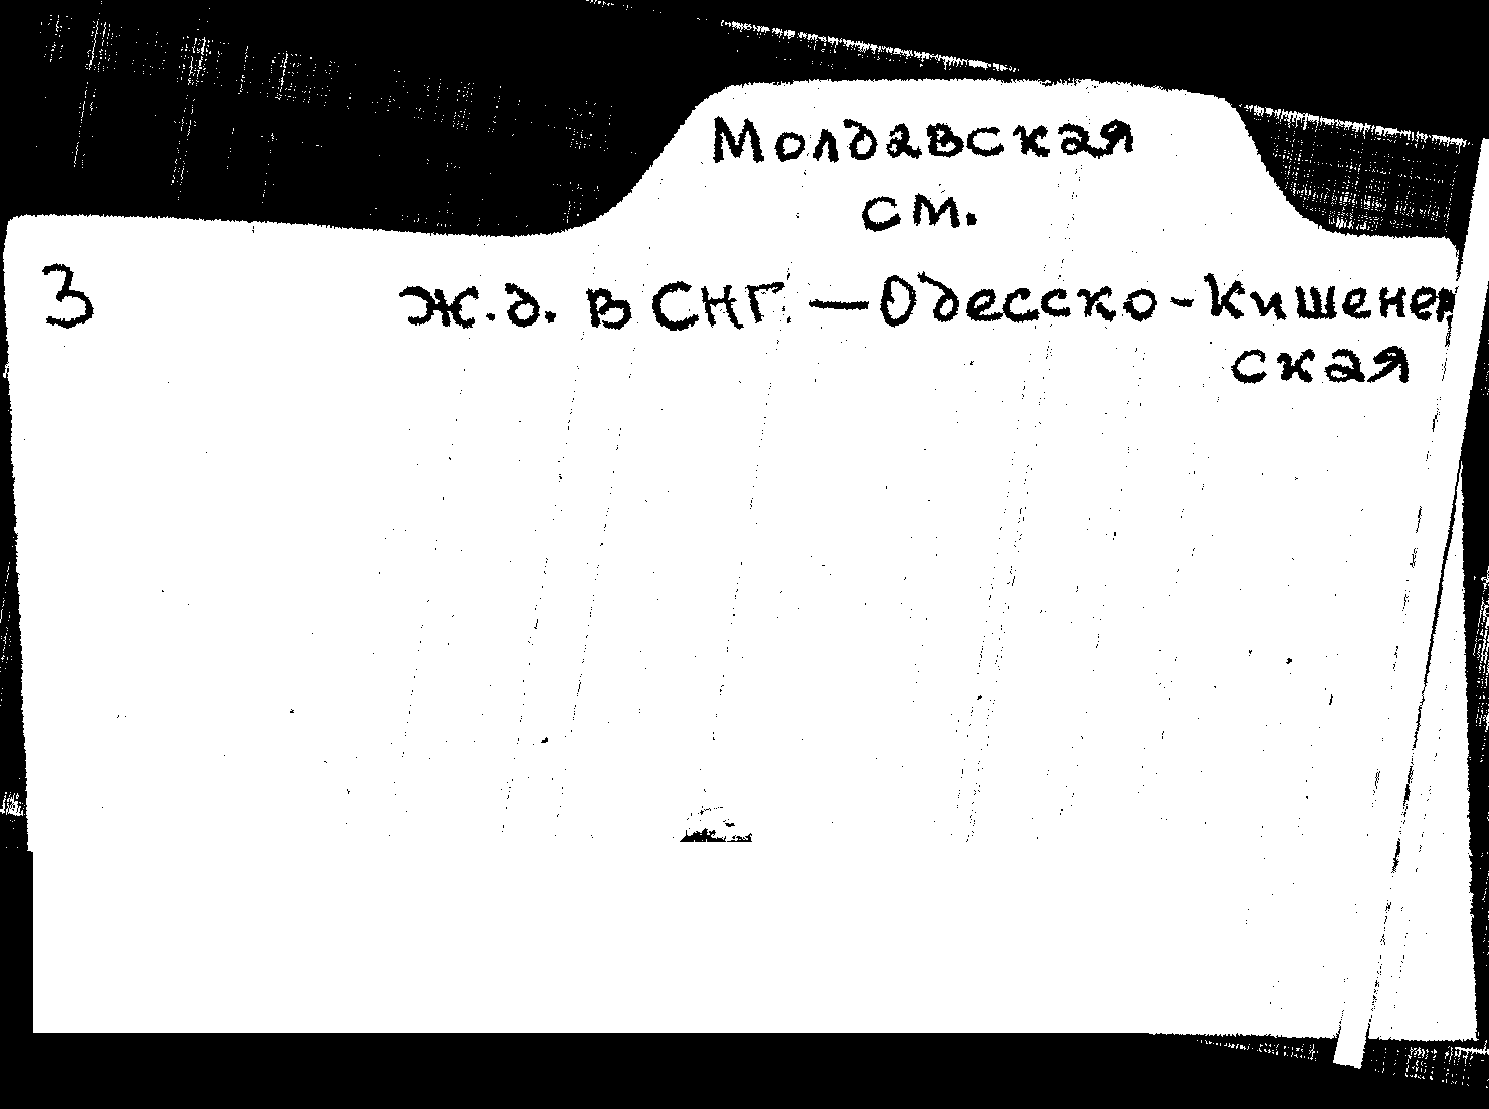 Молдавская
см.
3 ж.д. в СНГ — Одесско-Кишенев
ская